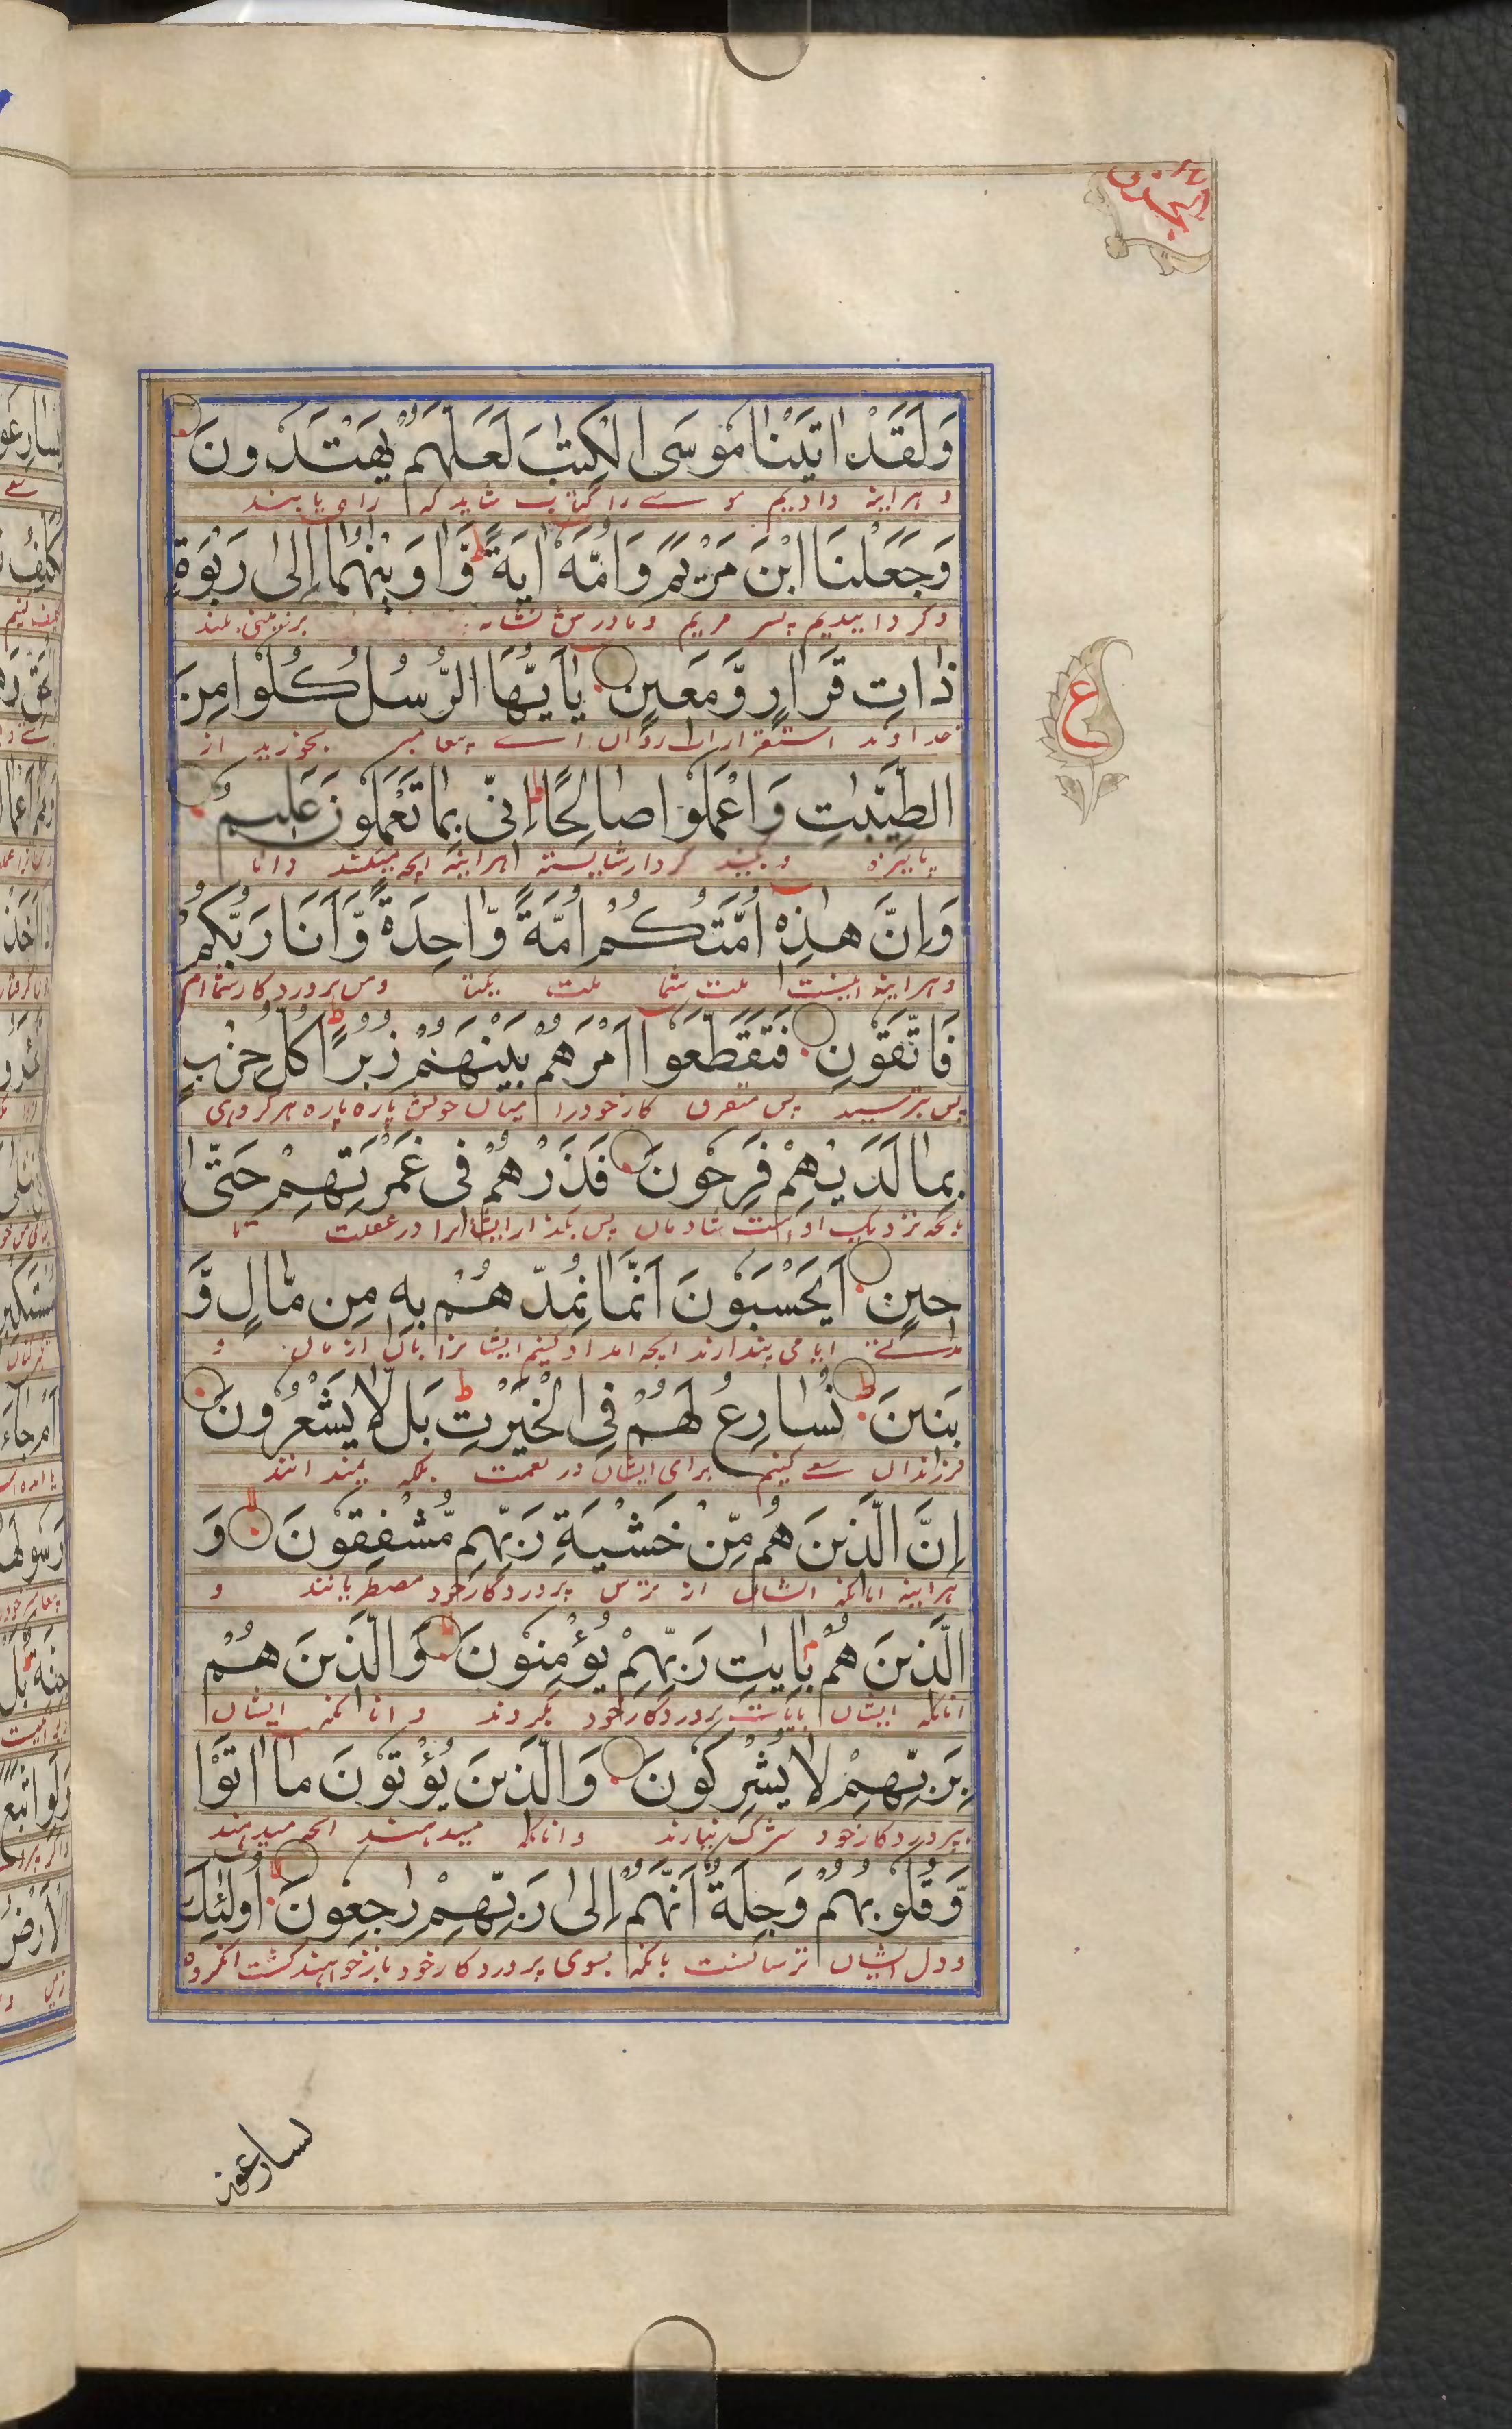 وَلَقَدْ اٰتَيْنَا مُوْسَى الْكِتٰبَ لَعَلَّهُمْ يَهْتَدُوْنَ
و هراینه دادیم موسے را کتاب شاید که راه یابند
وَجَعَلْنَا ابْنَ مَرْيَمَ وَاُمَّهٗ اٰيَةً ط وَّاٰوَيْنٰهُمَا اِلٰى رَبْوَةٍ
و گردانیدیم پسر مریم و مادرش نشانه بر زمینی بلند
ذَاتِ قَرَارٍ وَّمَعِيْنٍ يٰاَيُّهَا الرُّسُلُ كُلُوْا مِنَ
خداوند استقرار و آب روان اے پیغامبر بخورید از
الطَّيِّبٰتِ وَاعْمَلُوْا صَالِحًا ط اِنِّىْ بِمَا تَعْمَلُوْنَ عَلِيْمٌ
پاکیزه و بکنید کردار شایسته هراینه آنچه میکنند دانا
وَاِنَّ هٰذِهٖ اُمَّتُكُمْ اُمَّةً وَّاحِدَةً وَّاَنَا رَبُّكُمْ
و هراینه اینست ملت شما ملت یکتا و من پروردگار شماام
فَاتَّقُوْنِ فَتَقَطَّعُوْا اَمْرَهُمْ بَيْنَهُمْ زُبُرًا ط كُلُّ حِزْبٍ
پس بترسید پس متفرق کار خود را میان خویش پاره پاره هر گروهی
بِمَا لَدَيْهِمْ فَرِحُوْنَ فَذَرْهُمْ فِىْ غَمْرَتِهِمْ حَتّٰى
بآنچه نزدیک او است شادمان پس بگذار ایشانرا در غفلت تا
حِيْنٍ اَيَحْسَبُوْنَ اَنَّمَا نُمِدُّهُمْ بِهٖ مِنْ مَّالٍ وَّ
مدتے ایا می پندارند آنچه امداد کنیم ایشانرا بآن از مال و
بَنِيْنَ ط نُسَارِعُ لَهُمْ فِى الْخَيْرٰتِ ط بَلْ لَّا يَشْعُرُوْنَ
فرزندان سعے کنیم برای ایشان در نعمت بلکه نمیدانند
اِنَّ الَّذِيْنَ هُمْ مِّنْ خَشْيَةِ رَبِّهِمْ مُّشْفِقُوْنَ لا وَ
هراینه آنانکه ایشان از ترس پروردگار خود مضطربانند و
الَّذِيْنَ هُمْ بِاٰيٰتِ رَبِّهِمْ يُؤْمِنُوْنَ لا وَالَّذِيْنَ هُمْ
آنانکه ایشان بآیات پروردگار خود بگروند و آنانکه ایشان
بِرَبِّهِمْ لَا يُشْرِكُوْنَ وَالَّذِيْنَ يُؤْتُوْنَ مَا اٰتَوْا
بپروردگار خود شرک نیارند و آنانکه میدهند آنچه میدهند
وَّقُلُوْبُهُمْ وَجِلَةٌ اَنَّهُمْ اِلٰى رَبِّهِمْ رٰجِعُوْنَ لا اُولٰئِكَ
و دل ایشان ترسانست بآنکه بسوی پروردگار خود باز خواهند گشت آنگروه
ع
يسارعون